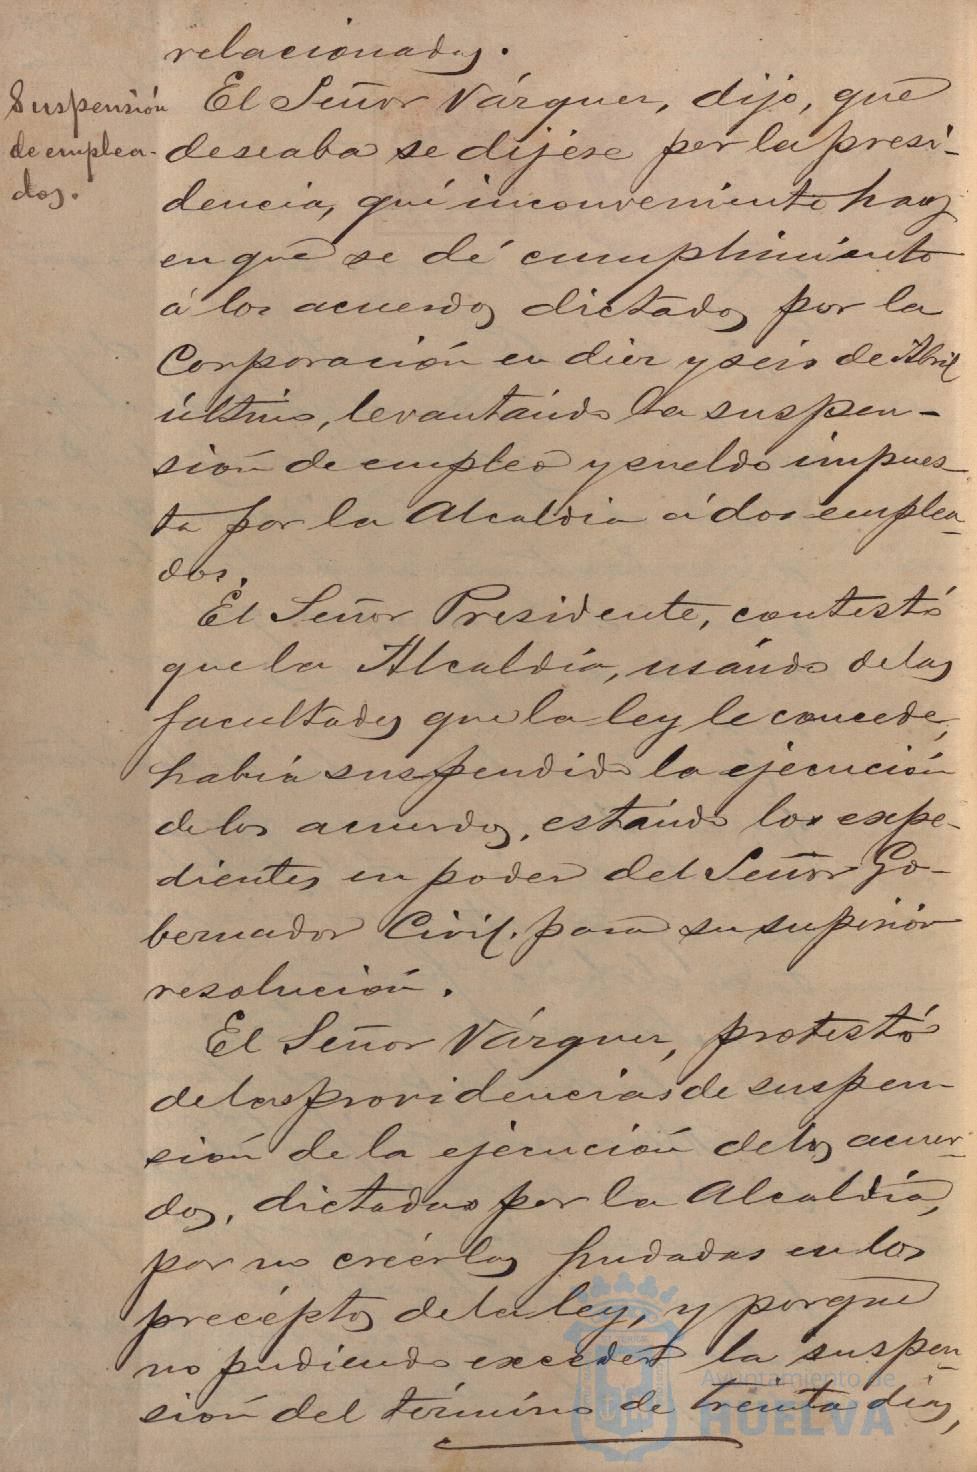 relacionados.
Suspensión
de emplea-
dos.
El Señor Vázquez, dijo, que
deseaba se dijése por la presi-
dencia, qué inconveniente hay
en que se dé cumplimiento
á los acuerdos dictados por la
Corporación en diez y seis de Abril
último, levantándo la suspen-
sión de empleo y sueldo impues-
ta por la Alcaldia á dos emplea-
dos.
El Señor Presidente, contestó
que la Alcaldía, usándo de las
facultades que la ley le concede,
había suspendido la ejecución
de los acuerdos, estándo los expe-
dientes en poder del Señor Go-
bernador Civil. para su superior
resolución.
El Señor Vázquez, protestó
de las providencias de suspen-
sión de la ejecución de los acuer-
dos, dictadas por la Alcaldía,
por no creérlas fundadas en los
precéptos de la ley, y porque
no pudiendo exceder la suspen-
sión del término de tréinta dias,
Ayuntamiento de
HUELVA